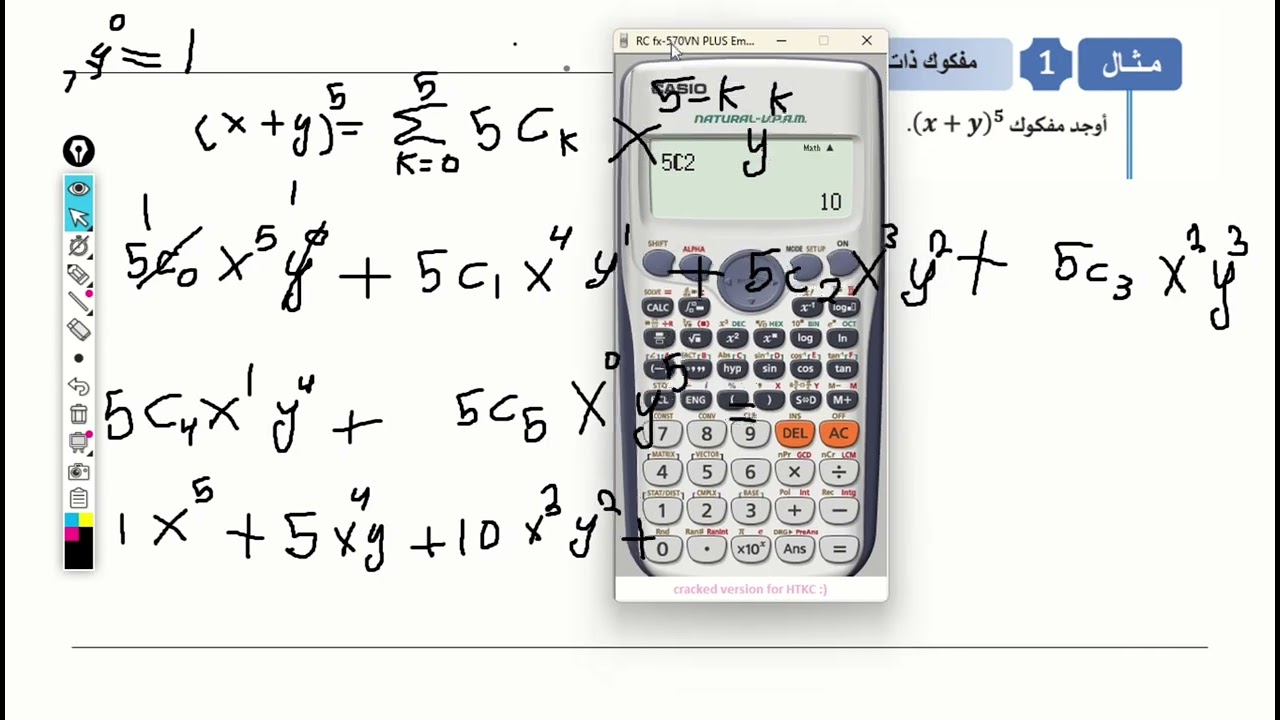 مثال 1 مفكوك ذات
أوجد مفكوك (x + y)⁵.
y⁰ = 1
(x + y)⁵ = Σ 5 K=0 5CK X⁵⁻ᴷ yᴷ
1 1
5C0 X⁵ y⁰ + 5C1 X⁴ y¹ + 5C2 X³ y² + 5C3 X² y³
5C4 X¹ y⁴ + 5C5 X⁰ y⁵ =
1 X⁵ + 5 X⁴ y + 10 X³ y² +
RC fx-570VN PLUS Em...
CASIO
NATURAL-V.P.A.M.
Math ▲
5C2
10
SHIFT ALPHA MODE SETUP ON
CALC x⁻¹ log
x² log ln
hyp sin cos tan
ENG ( ) S⇔D M+
7 8 9 DEL AC
4 5 6 × ÷
1 2 3 + −
0 . ×10ˣ Ans =
cracked version for HTKC :)